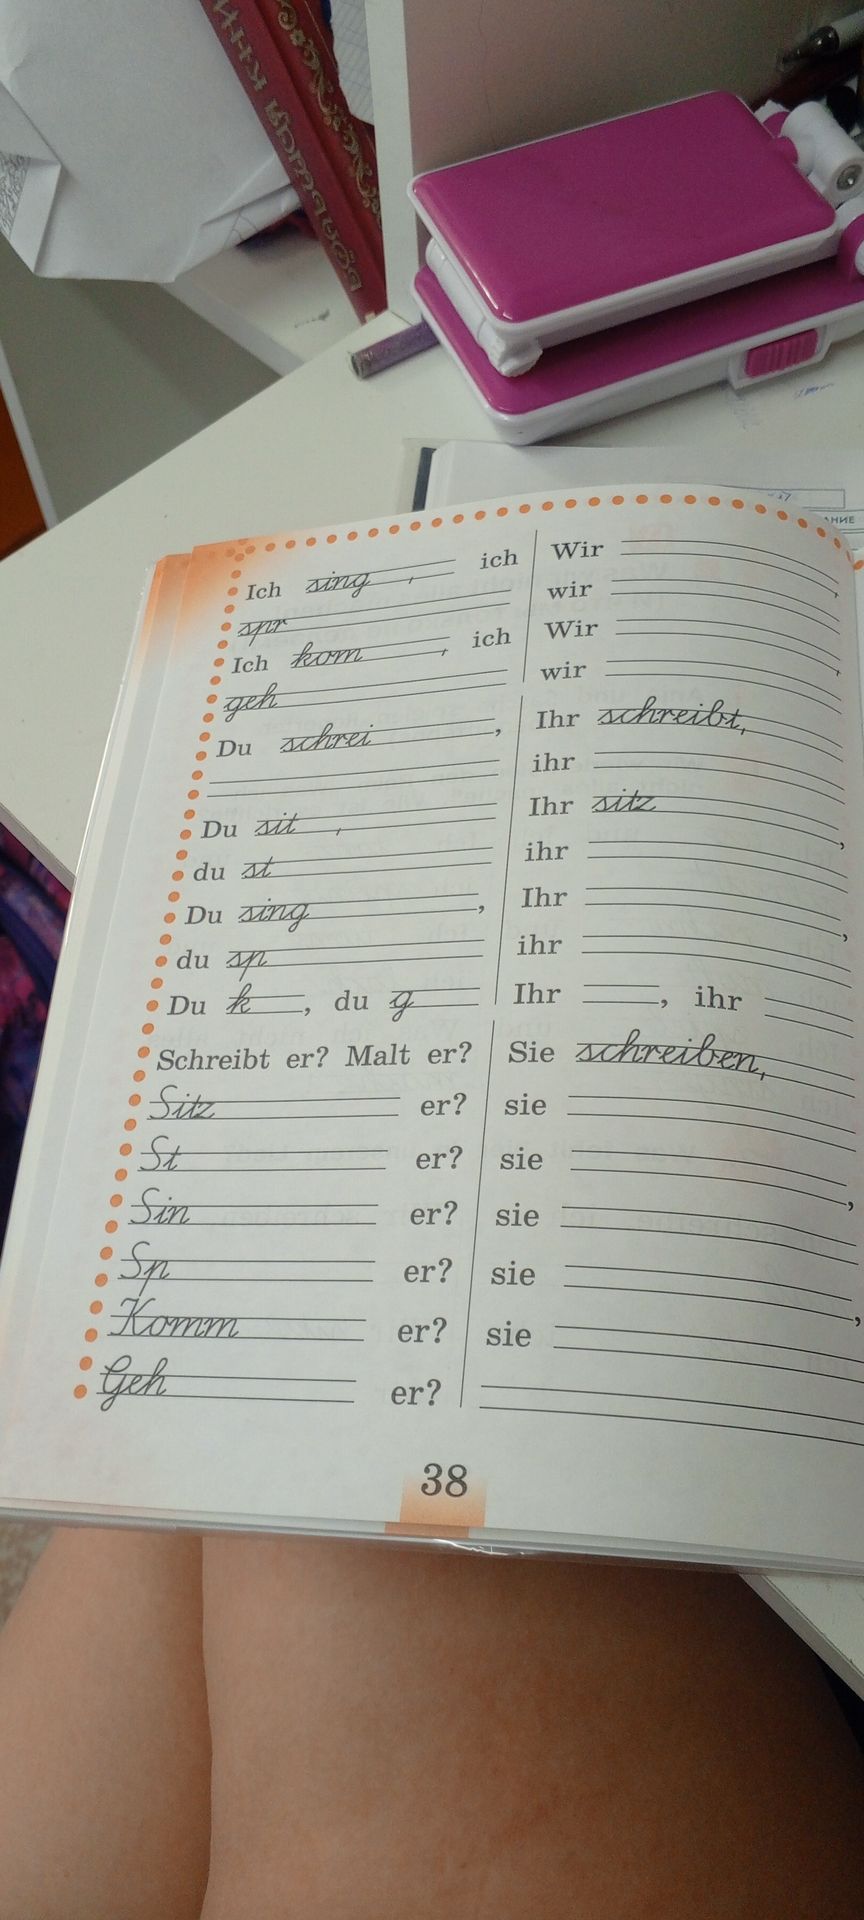 БОЛЬШАЯ КНИГ
АНИЕ
Ich sing , ich
spr
Ich kom , ich
geh
Du schrei ,
Du sit ,
du st
Du sing ,
du sp
Du k , du g
Schreibt er? Malt er?
Sitz er?
St er?
Sin er?
Sp er?
Komm er?
Geh er?
Wir ,
wir
Wir ,
wir
Ihr schreibt,
ihr
Ihr sitz ,
ihr
Ihr ,
ihr
Ihr , ihr
Sie schreiben,
sie
sie ,
sie
sie ,
sie
38